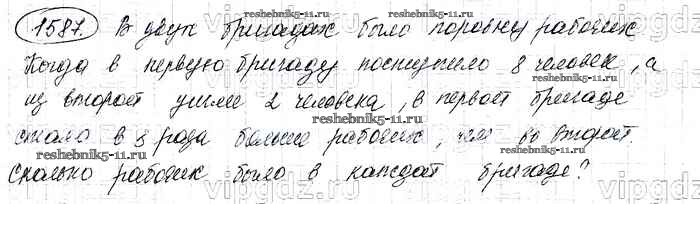 1587. В двух бригадах было поровну рабочих
Когда в первую бригаду поступило 8 человек, а
из второй ушли 2 человека, в первой бригаде
стало в 3 раза больше рабочих, чем во второй.
Сколько рабочих было в каждой бригаде?
reshebnik5-11.ru
reshebnik5-11.ru
reshebnik5-11.ru
reshebnik5-11.ru
reshebnik5-11.ru
vipgdz.ru
vipgdz.ru
vipgdz.ru